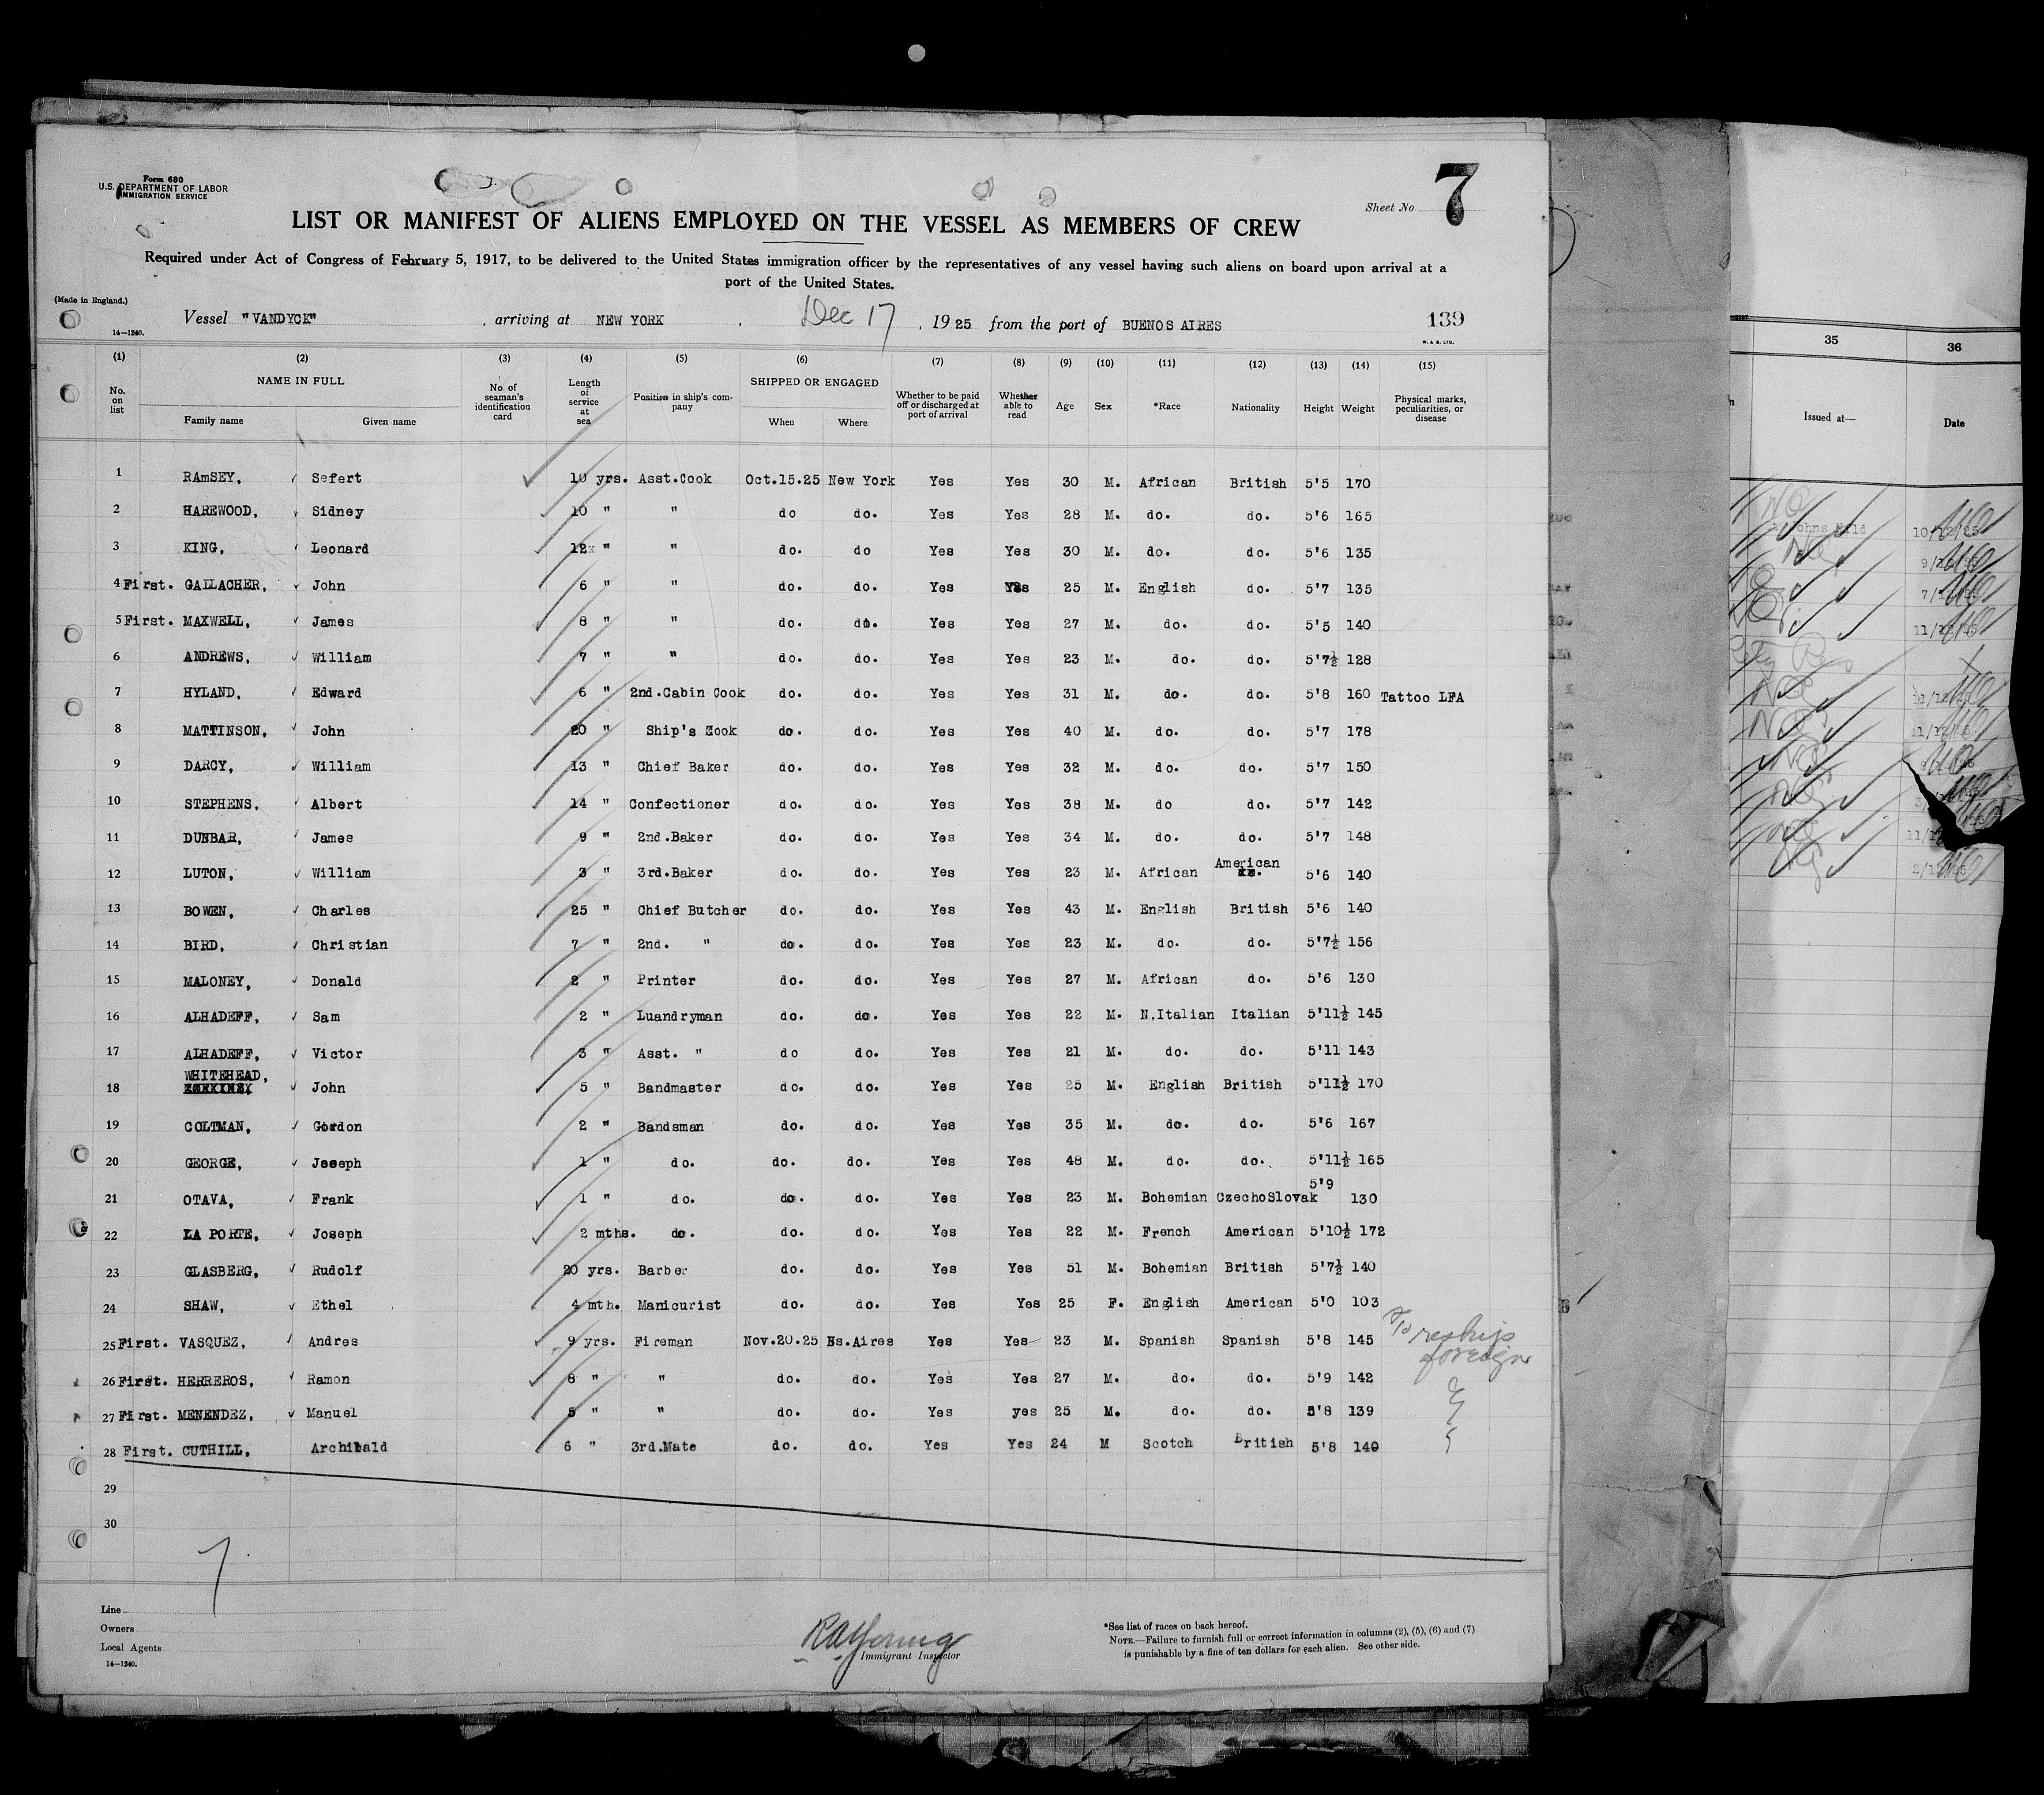 Form 680
U.S. DEPARTMENT OF LABOR
IMMIGRATION SERVICE
Sheet No. 7
LIST OR MANIFEST OF ALIENS EMPLOYED ON THE VESSEL AS MEMBERS OF CREW
Required under Act of Congress of February 5, 1917, to be delivered to the United States immigration officer by the representatives of any vessel having such aliens on board upon arrival at a
port of the United States.
(Made in England.)
14—1240.
Vessel "VANDYCK", arriving at NEW YORK, Dec 17, 1925 from the port of BUENOS AIRES
139
W. & S. LTD.
(1) (2) (3) (4) (5) (6) (7) (8) (9) (10) (11) (12) (13) (14) (15)
No. on list NAME IN FULL Family name Given name No. of seaman's identification card Length of service at sea Position in ship's company SHIPPED OR ENGAGED When Where Whether to be paid off or discharged at port of arrival Whether able to read Age Sex *Race Nationality Height Weight Physical marks, peculiarities, or disease
1 RAmSEY, Sefert 10 yrs. Asst.Cook Oct.15.25 New York Yes Yes 30 M. African British 5'5 170
2 HAREWOOD, Sidney 10 " " do do. Yes Yes 28 M. do. do. 5'6 165
3 KING, Leonard 12x " " do. do Yes Yes 30 M. do. do. 5'6 135
4 First. GALLACHER, John 6 " " do. do. Yes Yes 25 M. English do. 5'7 135
5 First. MAXWELL, James 8 " " do. do. Yes Yes 27 M. do. do. 5'5 140
6 ANDREWS, William 7 " " do. do. Yes Yes 23 M. do. do. 5'7½ 128
7 HYLAND, Edward 6 " 2nd.Cabin Cook do. do. Yes Yes 31 M. do. do. 5'8 160 Tattoo LFA
8 MATTINSON, John 20 " Ship's Cook do. do. Yes Yes 40 M. do. do. 5'7 178
9 DARCY, William 13 " Chief Baker do. do. Yes Yes 32 M. do. do. 5'7 150
10 STEPHENS, Albert 14 " Confectioner do. do. Yes Yes 38 M. do do. 5'7 142
11 DUNBAR, James 9 " 2nd.Baker do. do. Yes Yes 34 M. do. do. 5'7 148
12 LUTON, William 3 " 3rd.Baker do. do. Yes Yes 23 M. African American 5'6 140
13 BOWEN, Charles 25 " Chief Butcher do. do. Yes Yes 43 M. English British 5'6 140
14 BIRD, Christian 7 " 2nd. " do. do. Yes Yes 23 M. do. do. 5'7½ 156
15 MALONEY, Donald 2 " Printer do. do. Yes Yes 27 M. African do. 5'6 130
16 ALHADEFF, Sam 2 " Luandryman do. do. Yes Yes 22 M. N.Italian Italian 5'11½ 145
17 ALHADEFF, Victor 3 " Asst. " do do. Yes Yes 21 M. do. do. 5'11 143
18 WHITEHEAD, John 5 " Bandmaster do. do. Yes Yes 25 M. English British 5'11½ 170
19 COLTMAN, Gordon 2 " Bandsman do. do. Yes Yes 35 M. do. do. 5'6 167
20 GEORGE, Joseph 1 " do. do. do. Yes Yes 48 M. do. do. 5'11½ 165
21 OTAVA, Frank 1 " do. do. do. Yes Yes 23 M. Bohemian CzechoSlovak 5'9 130
22 LA PORTE, Joseph 2 mths. do. do. do. Yes Yes 22 M. French American 5'10½ 172
23 GLASBERG, Rudolf 20 yrs. Barber do. do. Yes Yes 51 M. Bohemian British 5'7½ 140
24 SHAW, Ethel 4 mth. Manicurist do. do. Yes Yes 25 F. English American 5'0 103
25 First. VASQUEZ, Andres 9 yrs. Fireman Nov.20.25 Bs.Aires Yes Yes 23 M. Spanish Spanish 5'8 145 To reship foreign
26 First. HERREROS, Ramon 8 " " do. do. Yes Yes 27 M. do. do. 5'9 142
27 First. MENENDEZ, Manuel 5 " " do. do. Yes yes 25 M. do. do. 5'8 139
28 First. CUTHILL, Archibald 6 " 3rd.Mate do. do. Yes Yes 24 M Scotch British 5'8 140
29
30
7
Line
Owners
Local Agents
14—1240.
RAYoung
Immigrant Inspector
*See list of races on back hereof.
NOTE.—Failure to furnish full or correct information in columns (2), (5), (6) and (7)
is punishable by a fine of ten dollars for each alien. See other side.
35 36
Issued at— Date